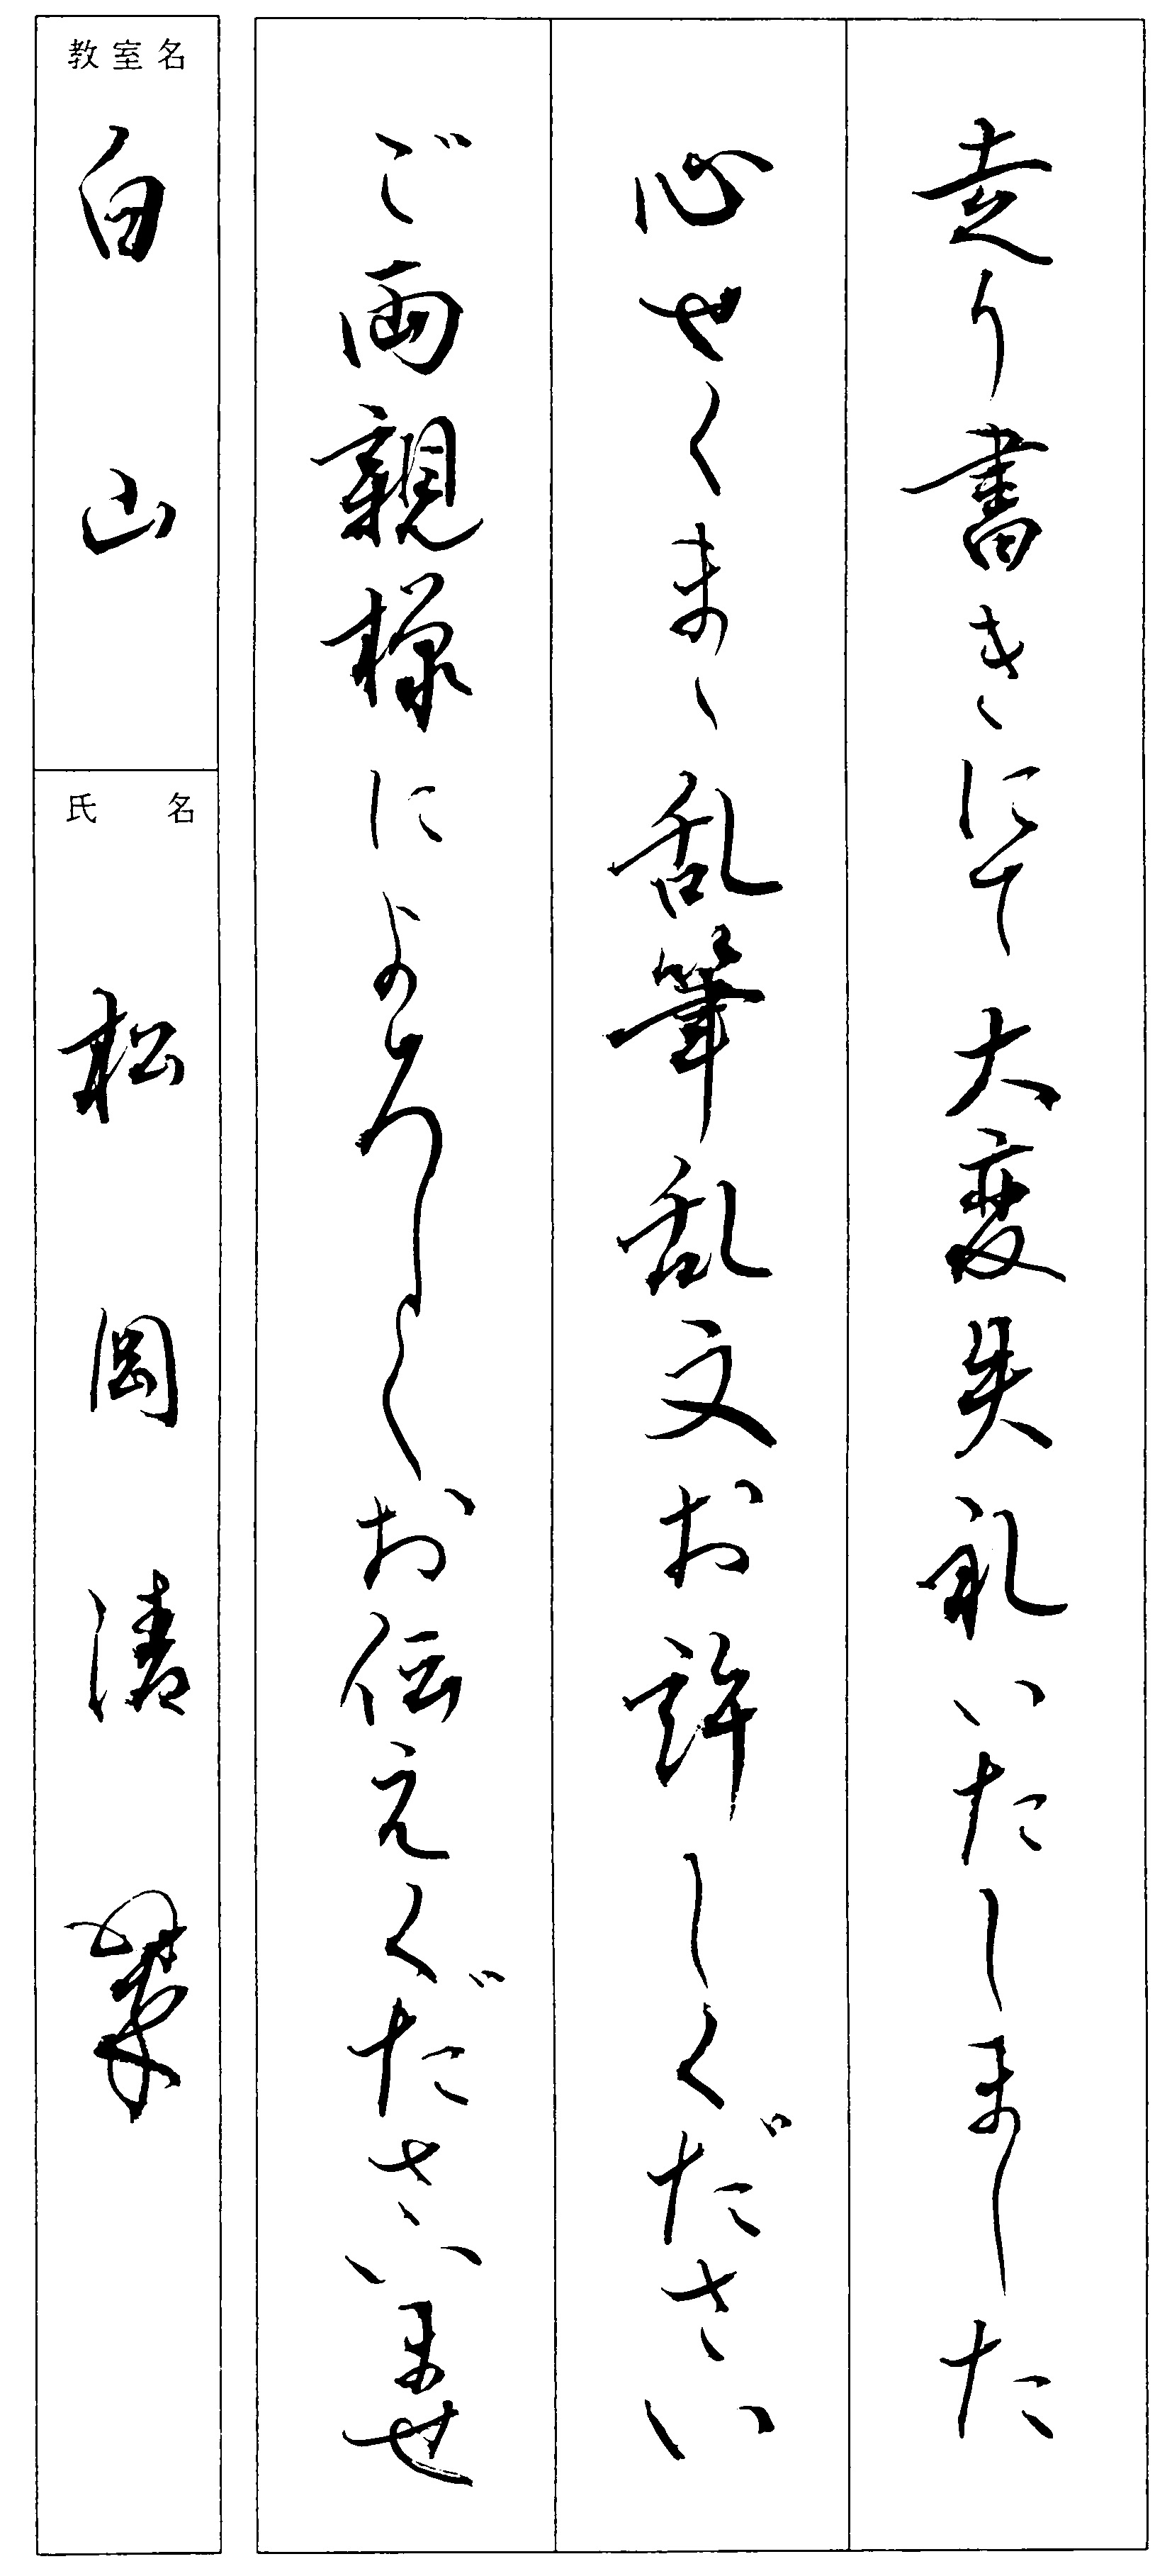 走り書きにて大変失礼いたしました
心せくまゝ乱筆乱文お許しください
ご両親様によろしくお伝えくださいませ
教室名
白山
氏名
松岡清翠